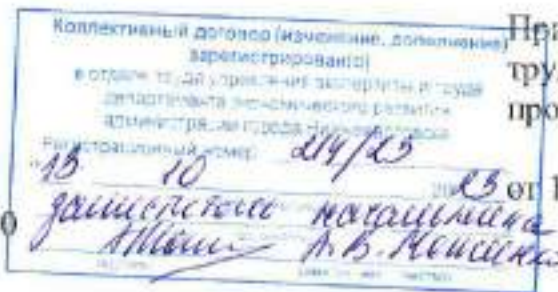 Коллективный договор (изменение, дополнение)
зарегистрирован(о)
в отделе труда управления экспертизы и труда
департамента экономического развития
администрации города
Регистрационный номер 214/23
"13 10 2023
заместитель начальника
А.В.
Пра
тру
про
от 1
0